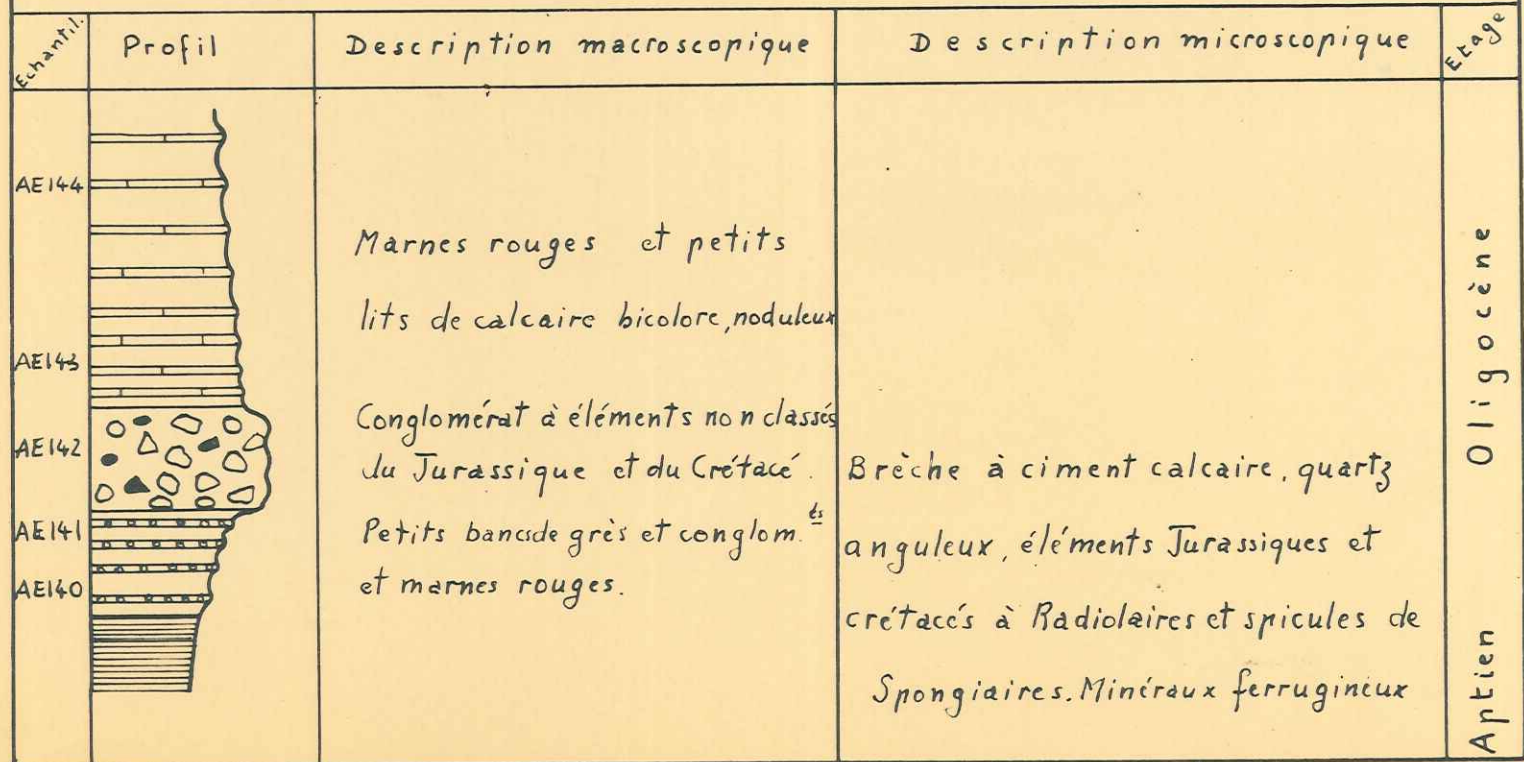 Echantil. Profil Description macroscopique Description microscopique Etage
AE144
Marnes rouges et petits
lits de calcaire bicolore, noduleux
AE143
Conglomérat à éléments non classés
AE142
du Jurassique et du Crétacé.
Petits bancs de grès et conglom. ts
AE141
et marnes rouges.
AE140
Brèche à ciment calcaire, quartz
anguleux, éléments Jurassiques et
crétacés à Radiolaires et spicules de
Spongiaires. Minéraux ferrugineux
Oligocène
Aptien